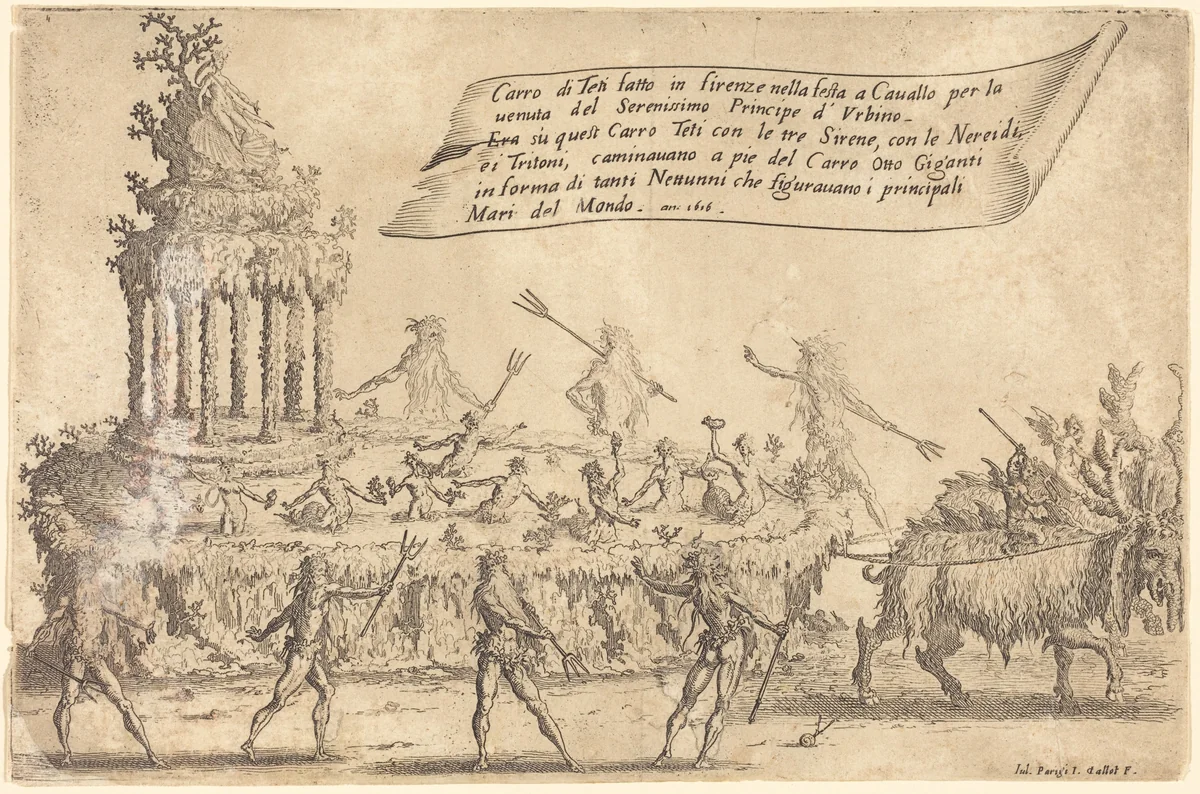 Carro di Teti fatto in firenze nella festa a Cauallo per la
uenuta del Serenissimo Principe d' Vrbino_
Era sù quest Carro Teti con le tre Sirene, con le Nereidi,
e i Tritoni, caminauano a pie del Carro Otto Giganti
in forma di tanti Nettunni che figurauano i principali
Mari del Mondo_ an: 1616_
Iul. Parigi I. Callot F.